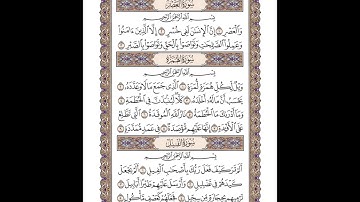 سورة العصر
بسم الله الرحمن الرحيم
والعصر ۝ إن الإنسن لفي خسر ۝ إلا الذين ءامنوا
وعملوا الصلحت وتواصوا بالحق وتواصوا بالصبر ۝
سورة الهمزة
بسم الله الرحمن الرحيم
ويل لكل همزة لمزة ۝ الذي جمع مالا وعدده ۝
يحسب أن ماله أخلده ۝ كلا لينبذن في الحطمة ۝
وما أدرىك ما الحطمة ۝ نار الله الموقدة ۝ التي تطلع
على الأفئدة ۝ إنها عليهم مؤصدة ۝ في عمد ممددة ۝
سورة الفيل
بسم الله الرحمن الرحيم
ألم تر كيف فعل ربك بأصحب الفيل ۝ ألم يجعل
كيدهم في تضليل ۝ وأرسل عليهم طيرا أبابيل ۝
ترميهم بحجارة من سجيل ۝ فجعلهم كعصف مأكول ۝